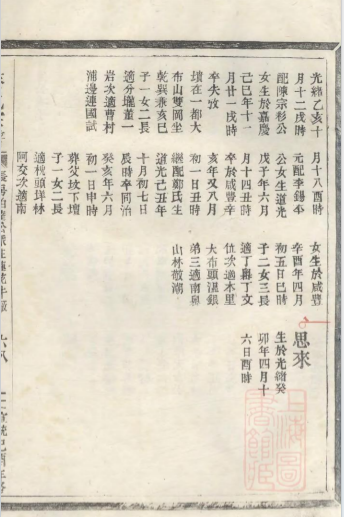 光緒乙亥十
月十二戌時
配陳宗彩公
女生於嘉慶
己巳年十一
月廿一戌時
卒失攷
墳在一都大
布山雙岡坐
乾巽兼亥巳
子一女二長
適分壠董一
岩次適曹村
浦邊連國試
月十八酉時
元配李錫平
公女生道光
戊子年六月
月十四丑時
卒於咸豐辛
亥年又八月
初一日丑時
繼配鄭氏生
道光己丑年
十月初七日
辰時卒同治
癸亥年六月
初一日申時
葬父坟下壇
子一女二長
適枕頭垟林
阿交次適南
女生於咸豐
辛酉年四月
初五日巳時
子二女三長
適丁文
次適木里
大布頭溫銀
弟三適南
山林敬潮
思來
生於光緒癸
卯年四月十
六日酉時